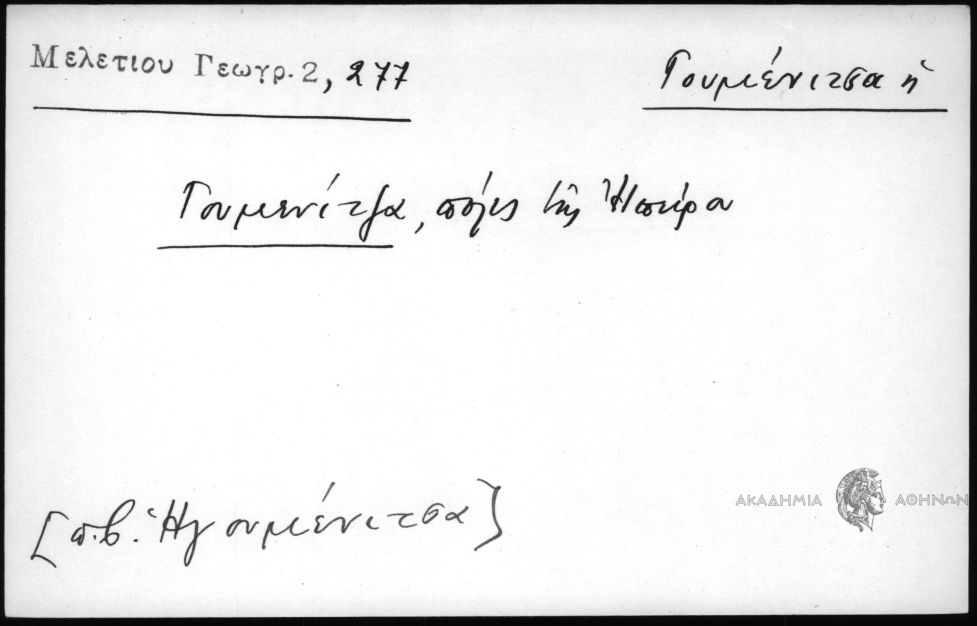 Μελετίου Γεωγρ. 2, 277
Γουμένιτσα ἡ
Γουμενίτζα, πόλις τῆς Ἠπείρου
[π.β. Ἡγουμένιτσα]
ΑΚΑΔΗΜΙΑ ΑΘΗΝΩΝ